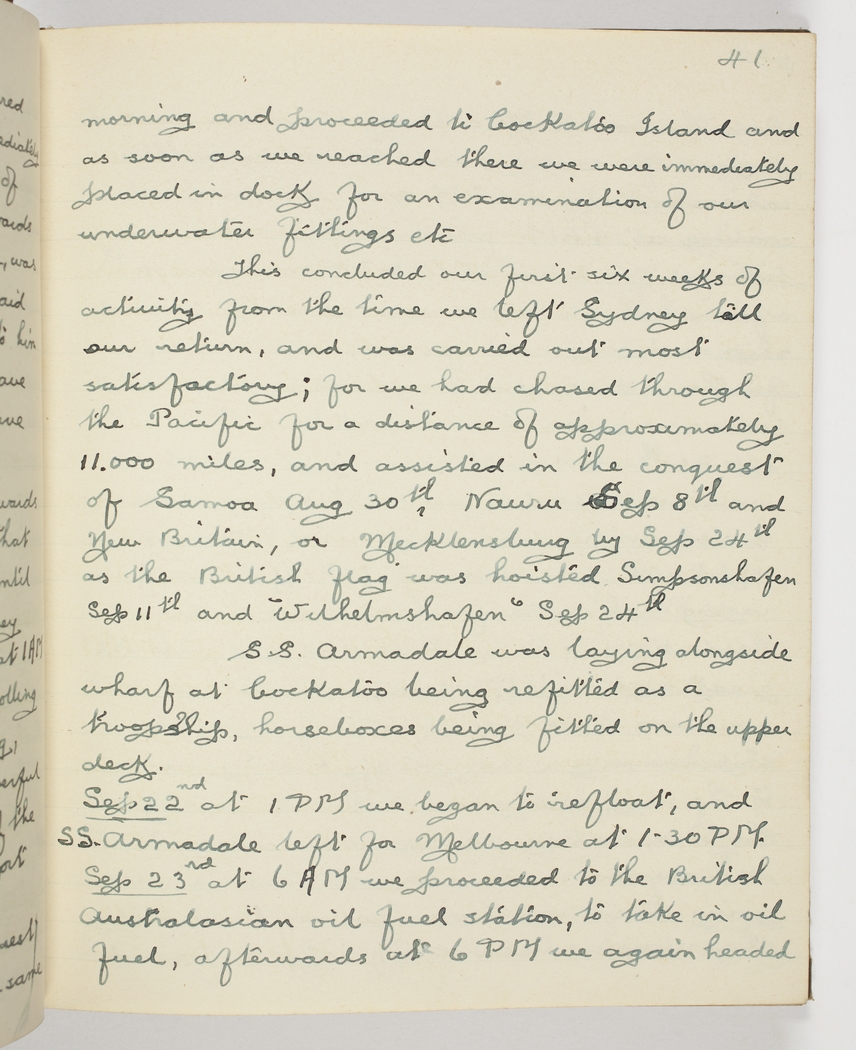 41
morning and proceeded to Cockatoo Island and
as soon as we reached there we were immediately
placed in dock for an examination of our
underwater fittings etc
This concluded our first six weeks of
activity from the time we left Sydney till
our return, and was carried out most
satisfactory; for we had chased through
the Pacific for a distance of approximately
11.000 miles, and assisted in the conquest
of Samoa Aug 30th Nauru Sep 8th and
New Britain, or Mecklensburg by Sep 24th
as the British flag was hoisted Simpsonshafen
Sep 11th and "Wilhelmshafen" Sep 24th
S.S. Armadale was laying alongside
wharf at Cockatoo being refitted as a
troopship, horseboxes being fitted on the upper
deck.
Sep 22nd at 1 PM we began to refloat, and
SS. Armadale left for Melbourne at 1-30 PM.
Sep 23rd at 6 AM we proceeded to the British
Australasian oil fuel station, to take in oil
fuel, afterwards at 6 PM we again headed